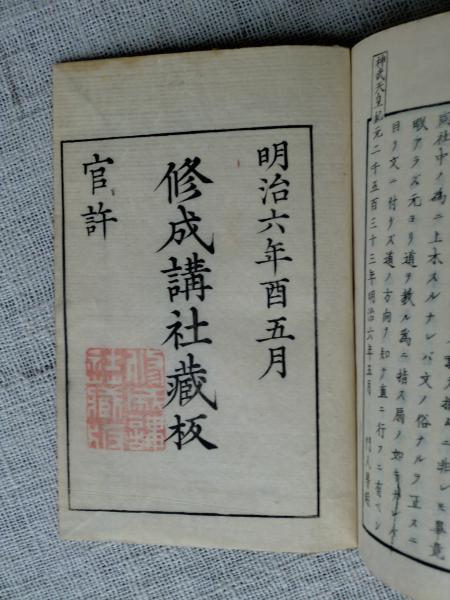 朙治六年酉五月
修成講社藏板
官許
修成講社藏版
同社中ノ爲ニ上木スルナレバ文ノ俗ナルヲ正スニ
暇アラズ元ヨリ道ヲ教ル爲ニ指ス扇ノ如キ
目り文ニ付ケズ道ノ方向ヲ知テ直ニ行フニ有ベシ
神武天皇紀元二千五百三十三年明治六年五月